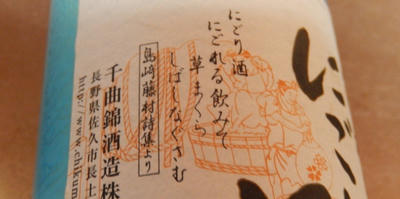 にごり
にごり酒
にごれる飲みて
草まくら
しばしなぐさむ
島崎藤村詩集より
千曲錦酒造株
長野県佐久市長土
http://www.chikum